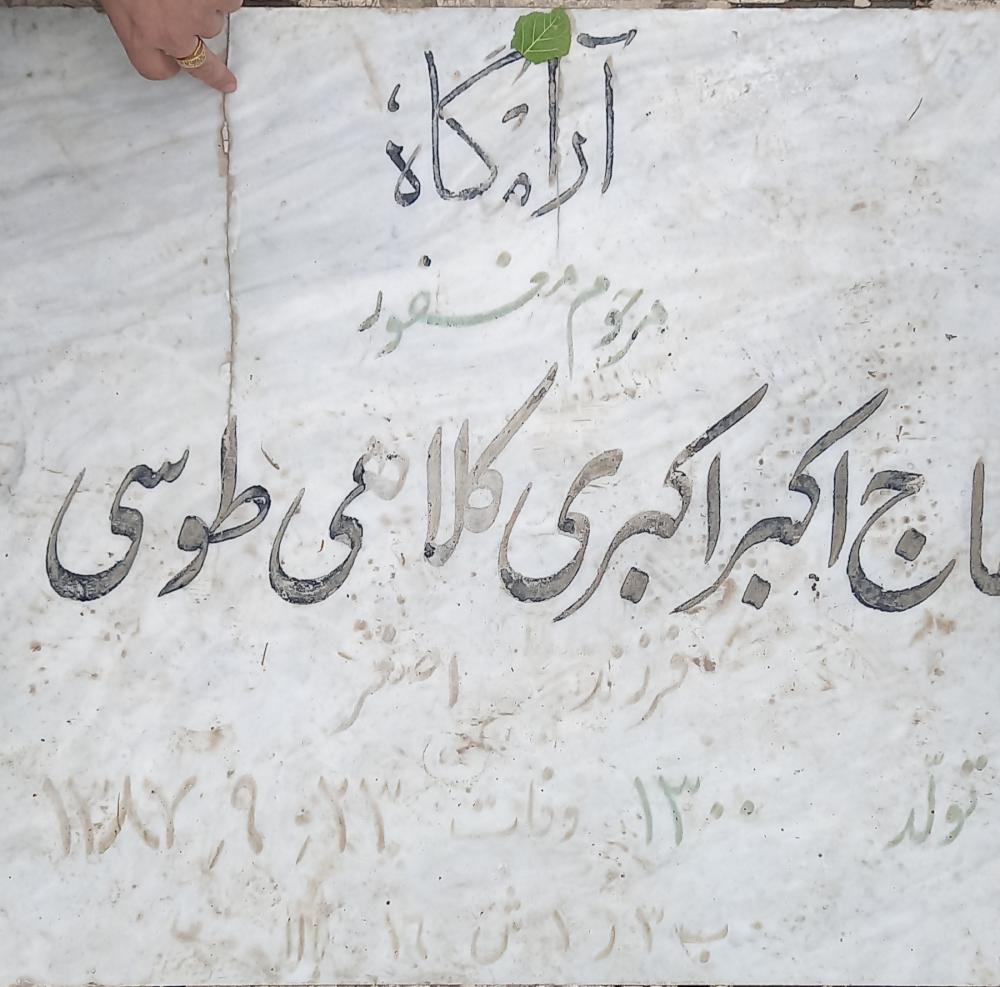 آرامگاه
مرحوم مغفور
حاج اکبر اکبری کلاغی طوسی
فرزند اصغر
تولّد ۱۳۰۰ وفات ۲۳ . ۹ . ۱۳۸۷
ب ۳ ر ۱ ش ۱۶